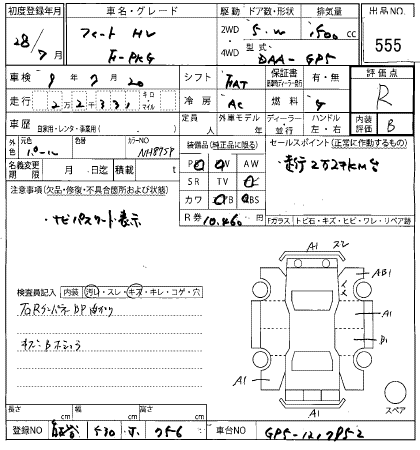 初度登録年月 車名・グレード 駆動 ドア数・形状 排気量 出品NO.
28/7月 フィット HV F-PKG 2WD 4WD 5.W 1500 cc 555
型式 DAA-GP5
車検 9年7月20 シフト FAT 保証書 有・無 評価点 R
走行 2万2千331 キロ マイル 冷房 AC 燃料 ガ
車歴 自家用・レンタ・事業用( ) 定員 外車モデル 年 ディーラー・並行 ハンドル 左・右 内装評価 B
外色 元色 パール 色替 カラーNO NH875P 装備品(純正品に限る) セールスポイント(正常に作動するもの)
名義変更期限 月 日迄 積載量 t PS PW AW
走行2万2千km台
SR TV
注意事項(欠品・修復・不具合箇所および状態) カワ ABS
R券 10,460 円 Fガラス トビ石・キズ・ヒビ・ワレ・リペア跡
ナビパスワード表示
検査員記入 内装 汚れ・スレ・キズ・キレ・コゲ・穴
A1 スレ
AB1
A1
B1
A1
A1
スペア
長さ cm 幅 cm 高さ cm
登録NO 530 756 車台NO GP5-1217952